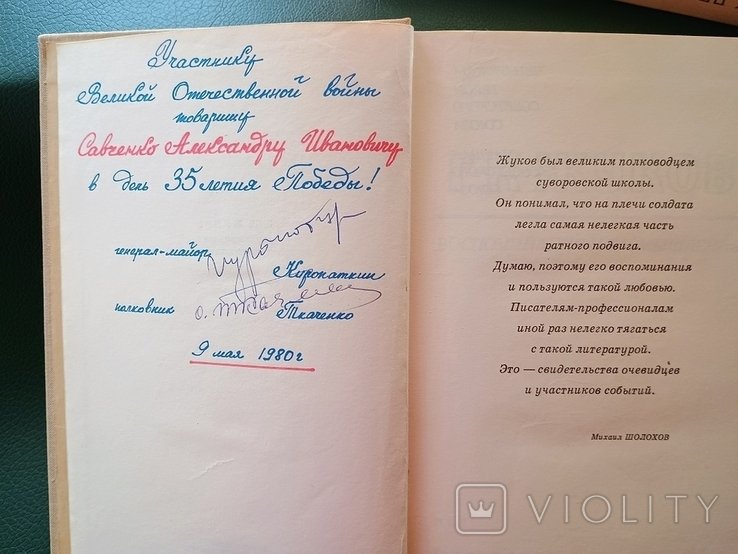 Участнику
Великой Отечественной войны
товарищу
Савченко Александру Ивановичу
в день 35 летия Победы!
генерал-майор
Куропаткин
полковник
Ткаченко
9 мая 1980 г
Жуков был великим полководцем
суворовской школы.
Он понимал, что на плечи солдата
легла самая нелегкая часть
ратного подвига.
Думаю, поэтому его воспоминания
и пользуются такой любовью.
Писателям-профессионалам
иной раз нелегко тягаться
с такой литературой.
Это — свидетельства очевидцев
и участников событий.
Михаил ШОЛОХОВ
VIOLITY